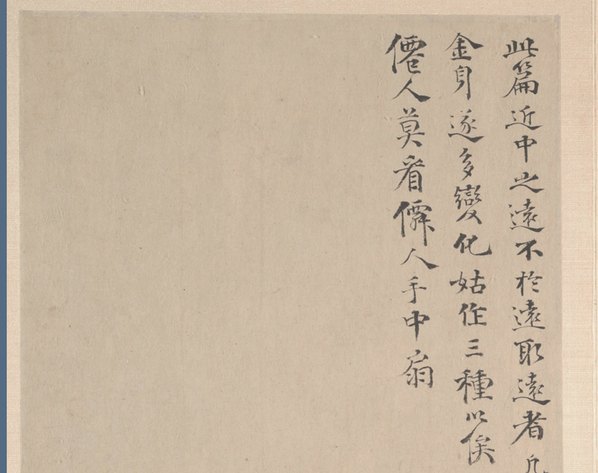 此篇近中之遠不於遠取遠者
金身遂多變化姑作三種以俟
僊人莫看人手中扇